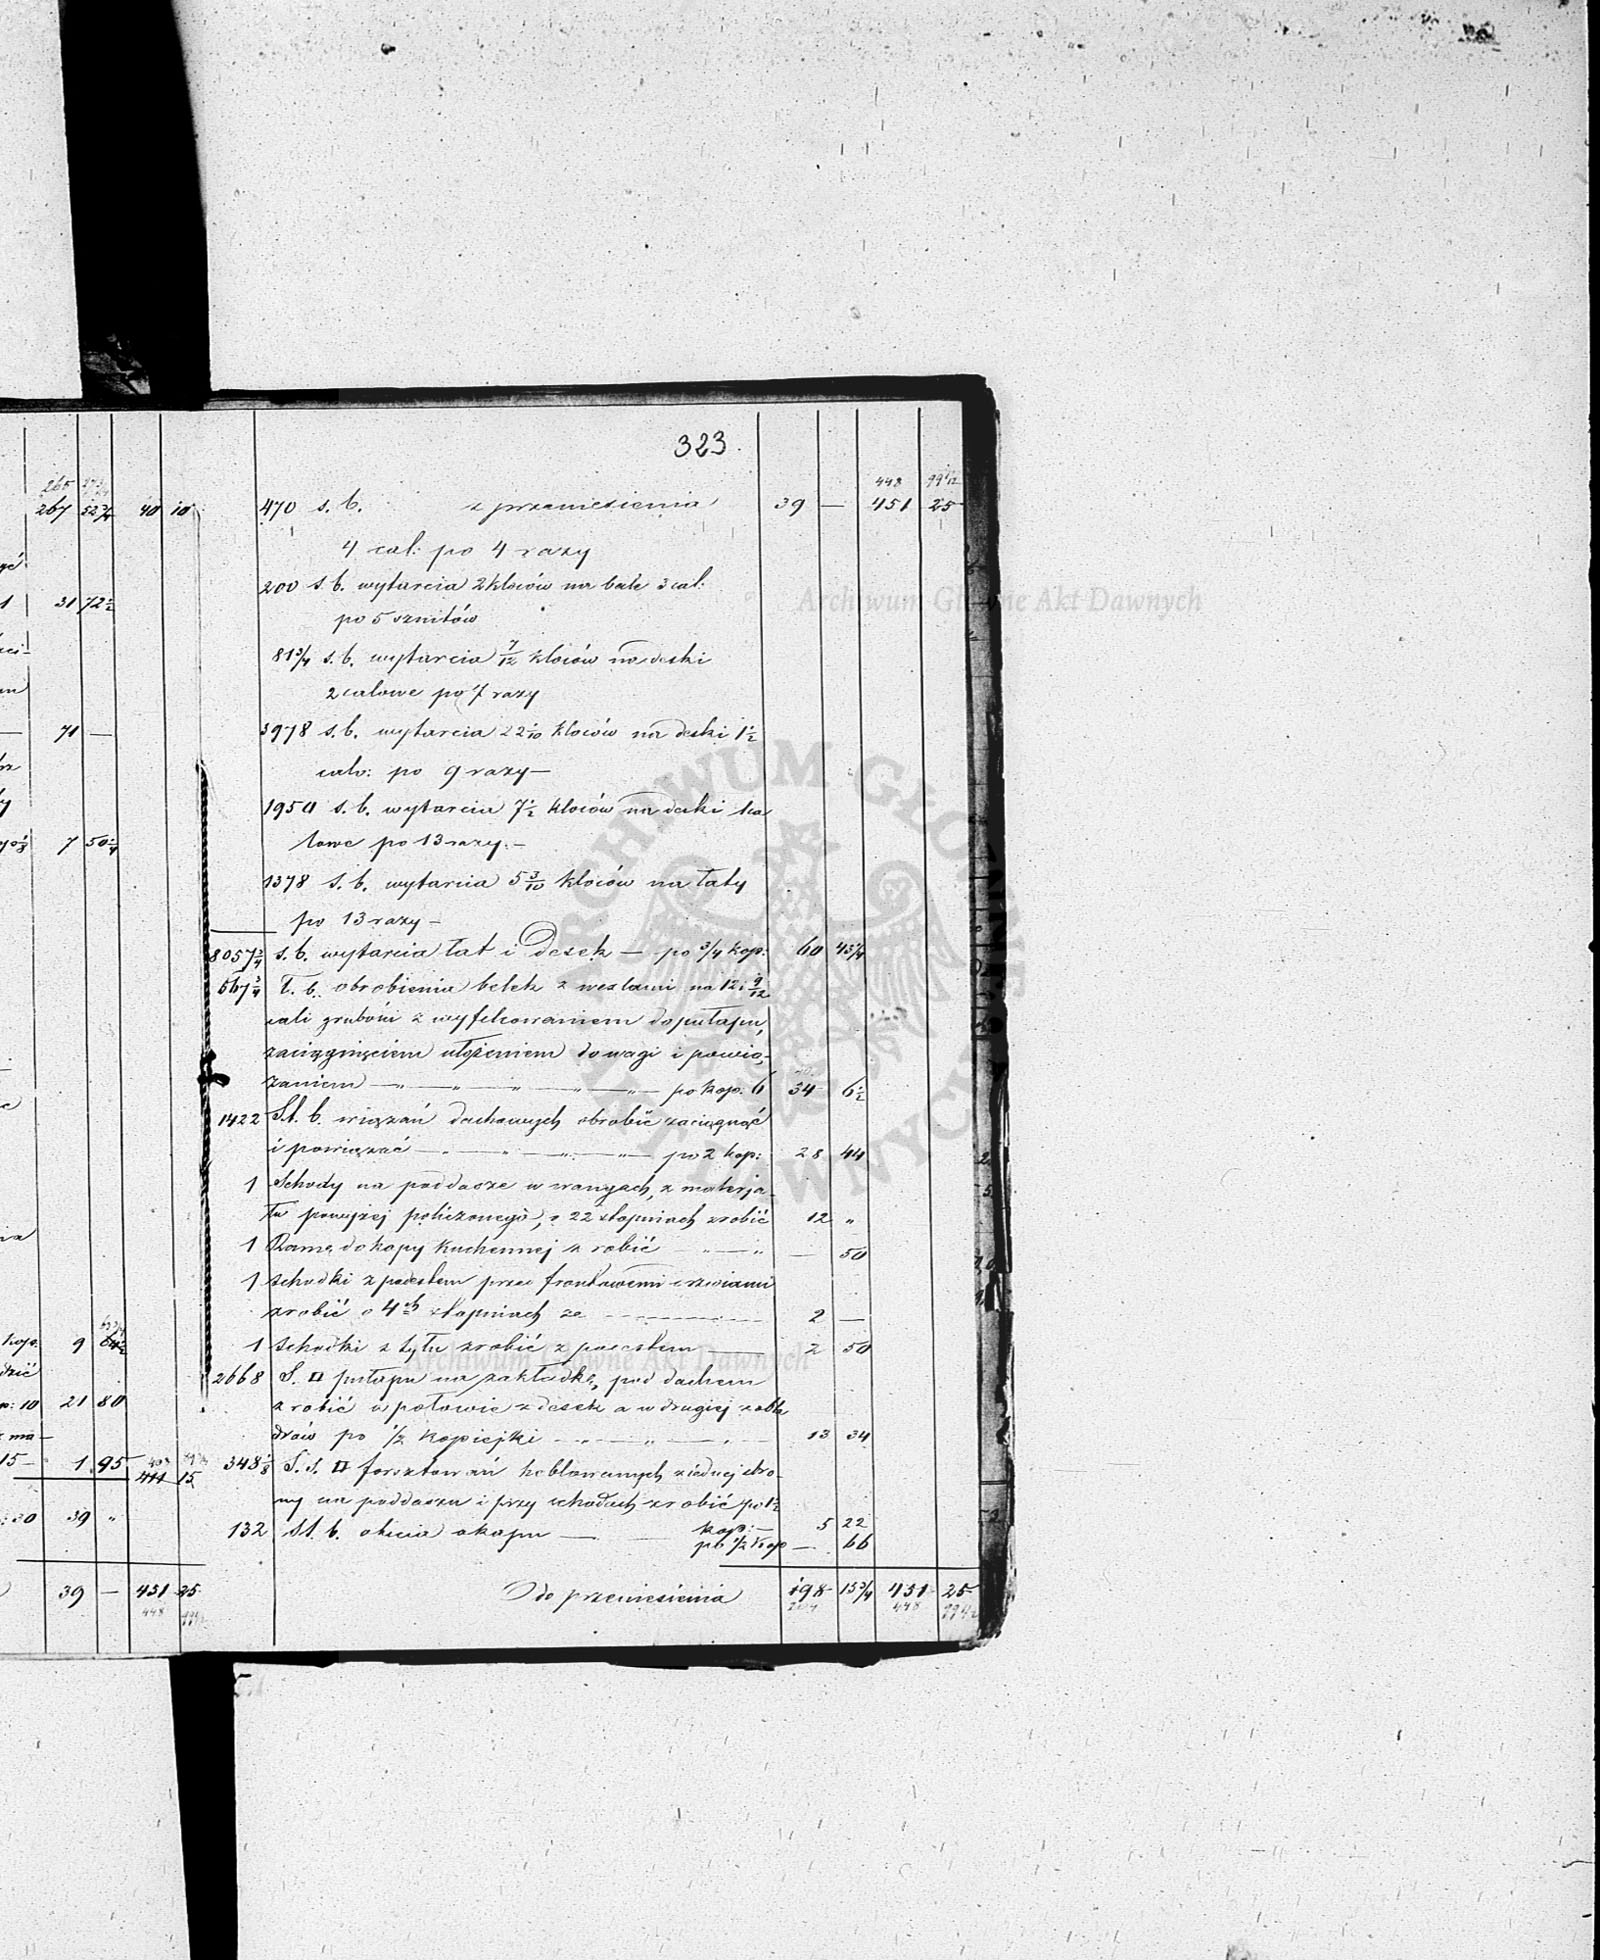 323.
265 273
267 52 3/4 40 10
31 72 1/2
71 —
7 50 1/4
kop. 9 64 1/2
dzić
p: 10 21 80
z ma—
15— 1 95 411 15
:30 39 "
39 — 451 25
448 99 1/2
448 99 1/2
470 s. b. z przeniesienia 39 — 451 25
4 cal: po 4 razy
200 s. b. wytarcia 2 kloców na bale 3 cal:
po 5 sznitów
81 3/4 s. b. wytarcia 7/12 kloców na deski
2 calowe po 7 razy
3978 s. b. wytarcia 22 1/10 kloców na deski 1 1/2
calo: po 9 razy —
1950 s. b. wytarcia 7 1/2 kloców na deski ca
lowe po 13 razy. —
1378 s. b. wytarcia 5 3/10 kloców na łaty
po 13 razy —
8057 3/4 s. b. wytarcia łat i Desek — po 3/4 kop: 60 43 1/4
567 3/4 S. b. obrobienia belek z wexlami na 12 i 9/12
cali grubości z wyfelcowaniem do pułapu,
zaciągnięciem ułożeniem do wagi i powią-
zaniem — " — " — " — " — " — po kop: 6 34 6 1/2
1422 St. b. wiązań dachowych obrobić zaciągnąć
i powiązać — " — " — " — " — po 2 kop: 28 44
1 Schody na poddasze w wangach, z materja-
łu powyżej policzonego, o 22 stopniach zrobić 12 "
1 Ramę do kapy kuchennej zrobić — " — " — 50
1 schodki z podestem przed frontowemi drzwiami
zrobić o 4ch stopniach za — 2 —
1 schodki z tyłu zrobić z podestem — 2 50
2668 S. □ pułapu na zakładkę, pod dachem
zrobić w połowie z desek a w drugiej z obla
drów po 1/2 kopiejki — " — " — 13 34
348 1/8 S. s. □ forsztowań heblowanych z jednej stro-
ny na poddaszu i przy schodach zrobić po 1 1/2
kop: — 5 22
132 st. b. obicia okapu — po 1/2 kop — 66
do przeniesienia 198 15 3/4 451 25
204 448 99 1/2
Archiwum Główne Akt Dawnych
Archiwum Główne Akt Dawnych
ARCHIWUM GŁÓWNE AKT DAWNYCH